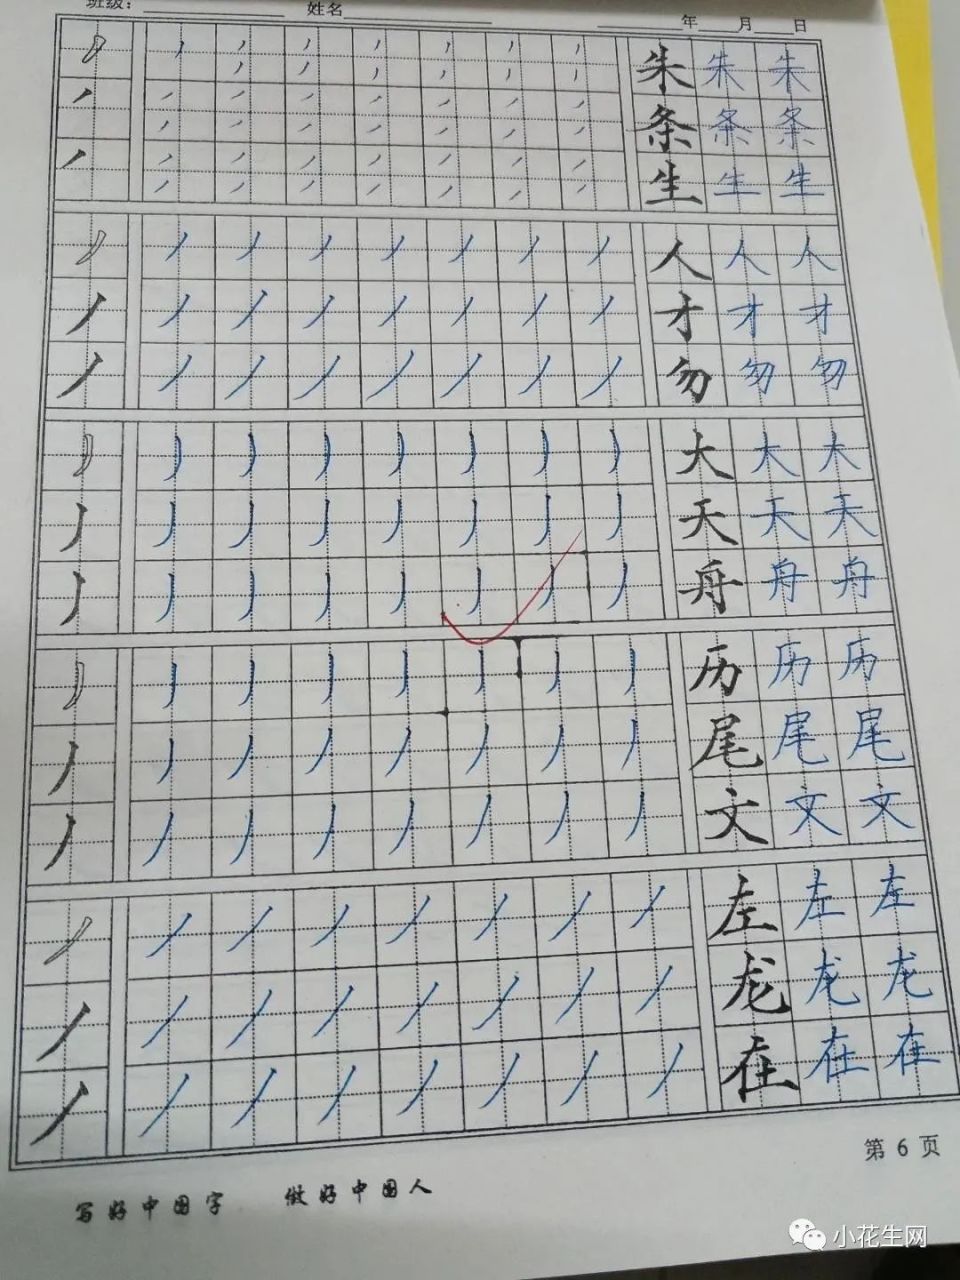 班级: 姓名 年 月 日
朱 朱 朱
条 条 条
生 生 生
人 人 人
才 才 才
勿 勿 勿
大 大 大
天 天 天
舟 舟 舟
历 历 历
尾 尾 尾
文 文 文
左 左 左
龙 龙 龙
在 在 在
第 6 页
写好中国字 做好中国人
小花生网